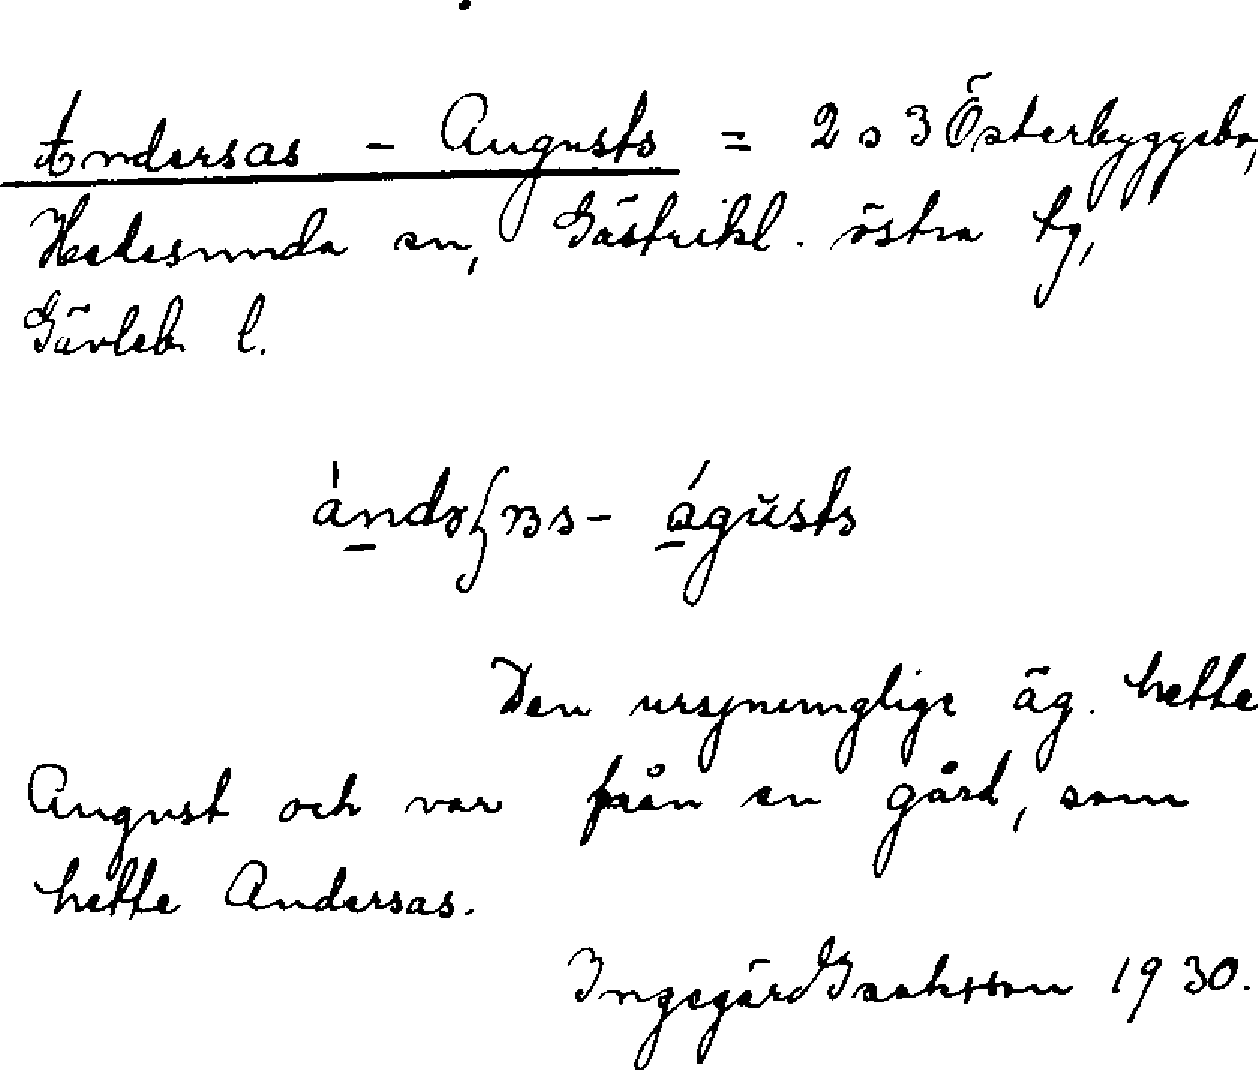 Andersas - Augusts = 2 o 3 Österbyggebo,
Hedesunda sn, Gästrikl. östra tg,
Gävleb l.
ándʂɐs - ágŭsts
Den urspriunglige äg. hette
August och var från en gård, som
hette Andersas.
Ingegärd Isaksson 1930.